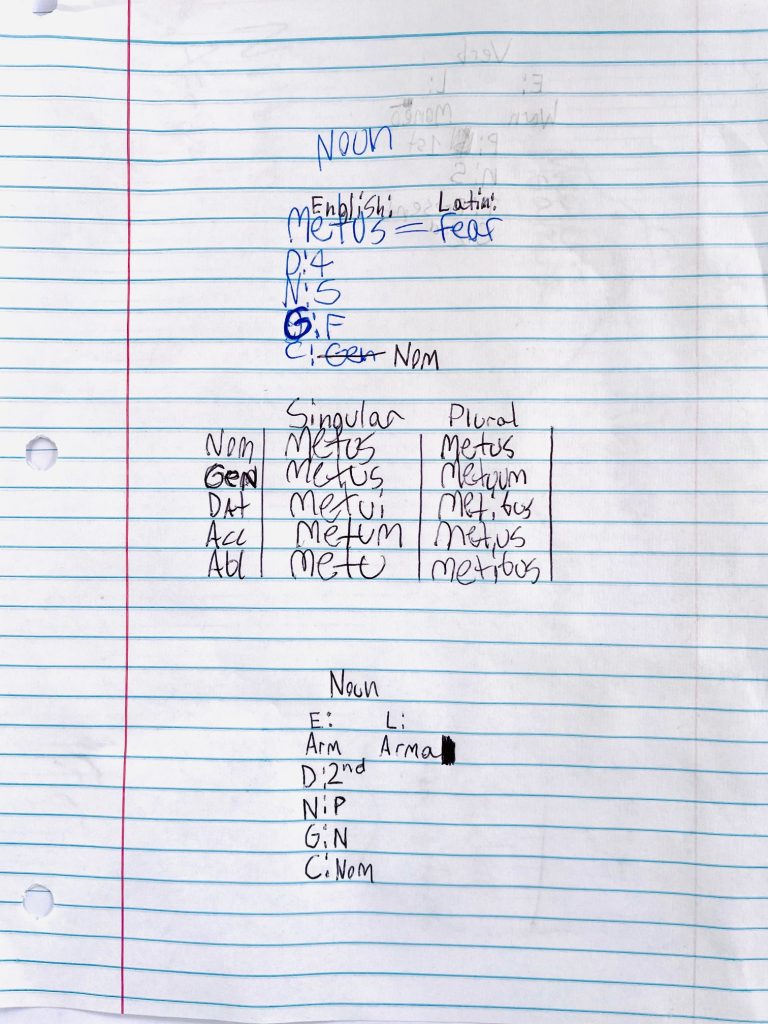 Noun
English: Latin:
Metus = fear
D:4
N:S
G:F
C: Gen Nom
Singular Plural
Nom Metus Metus
Gen Metus Metuum
Dat Metui Metibus
Acc Metum Metus
Abl Metu Metibus
Noun
E: L:
Arm Arma
D:2nd
N:P
G:N
C:Nom